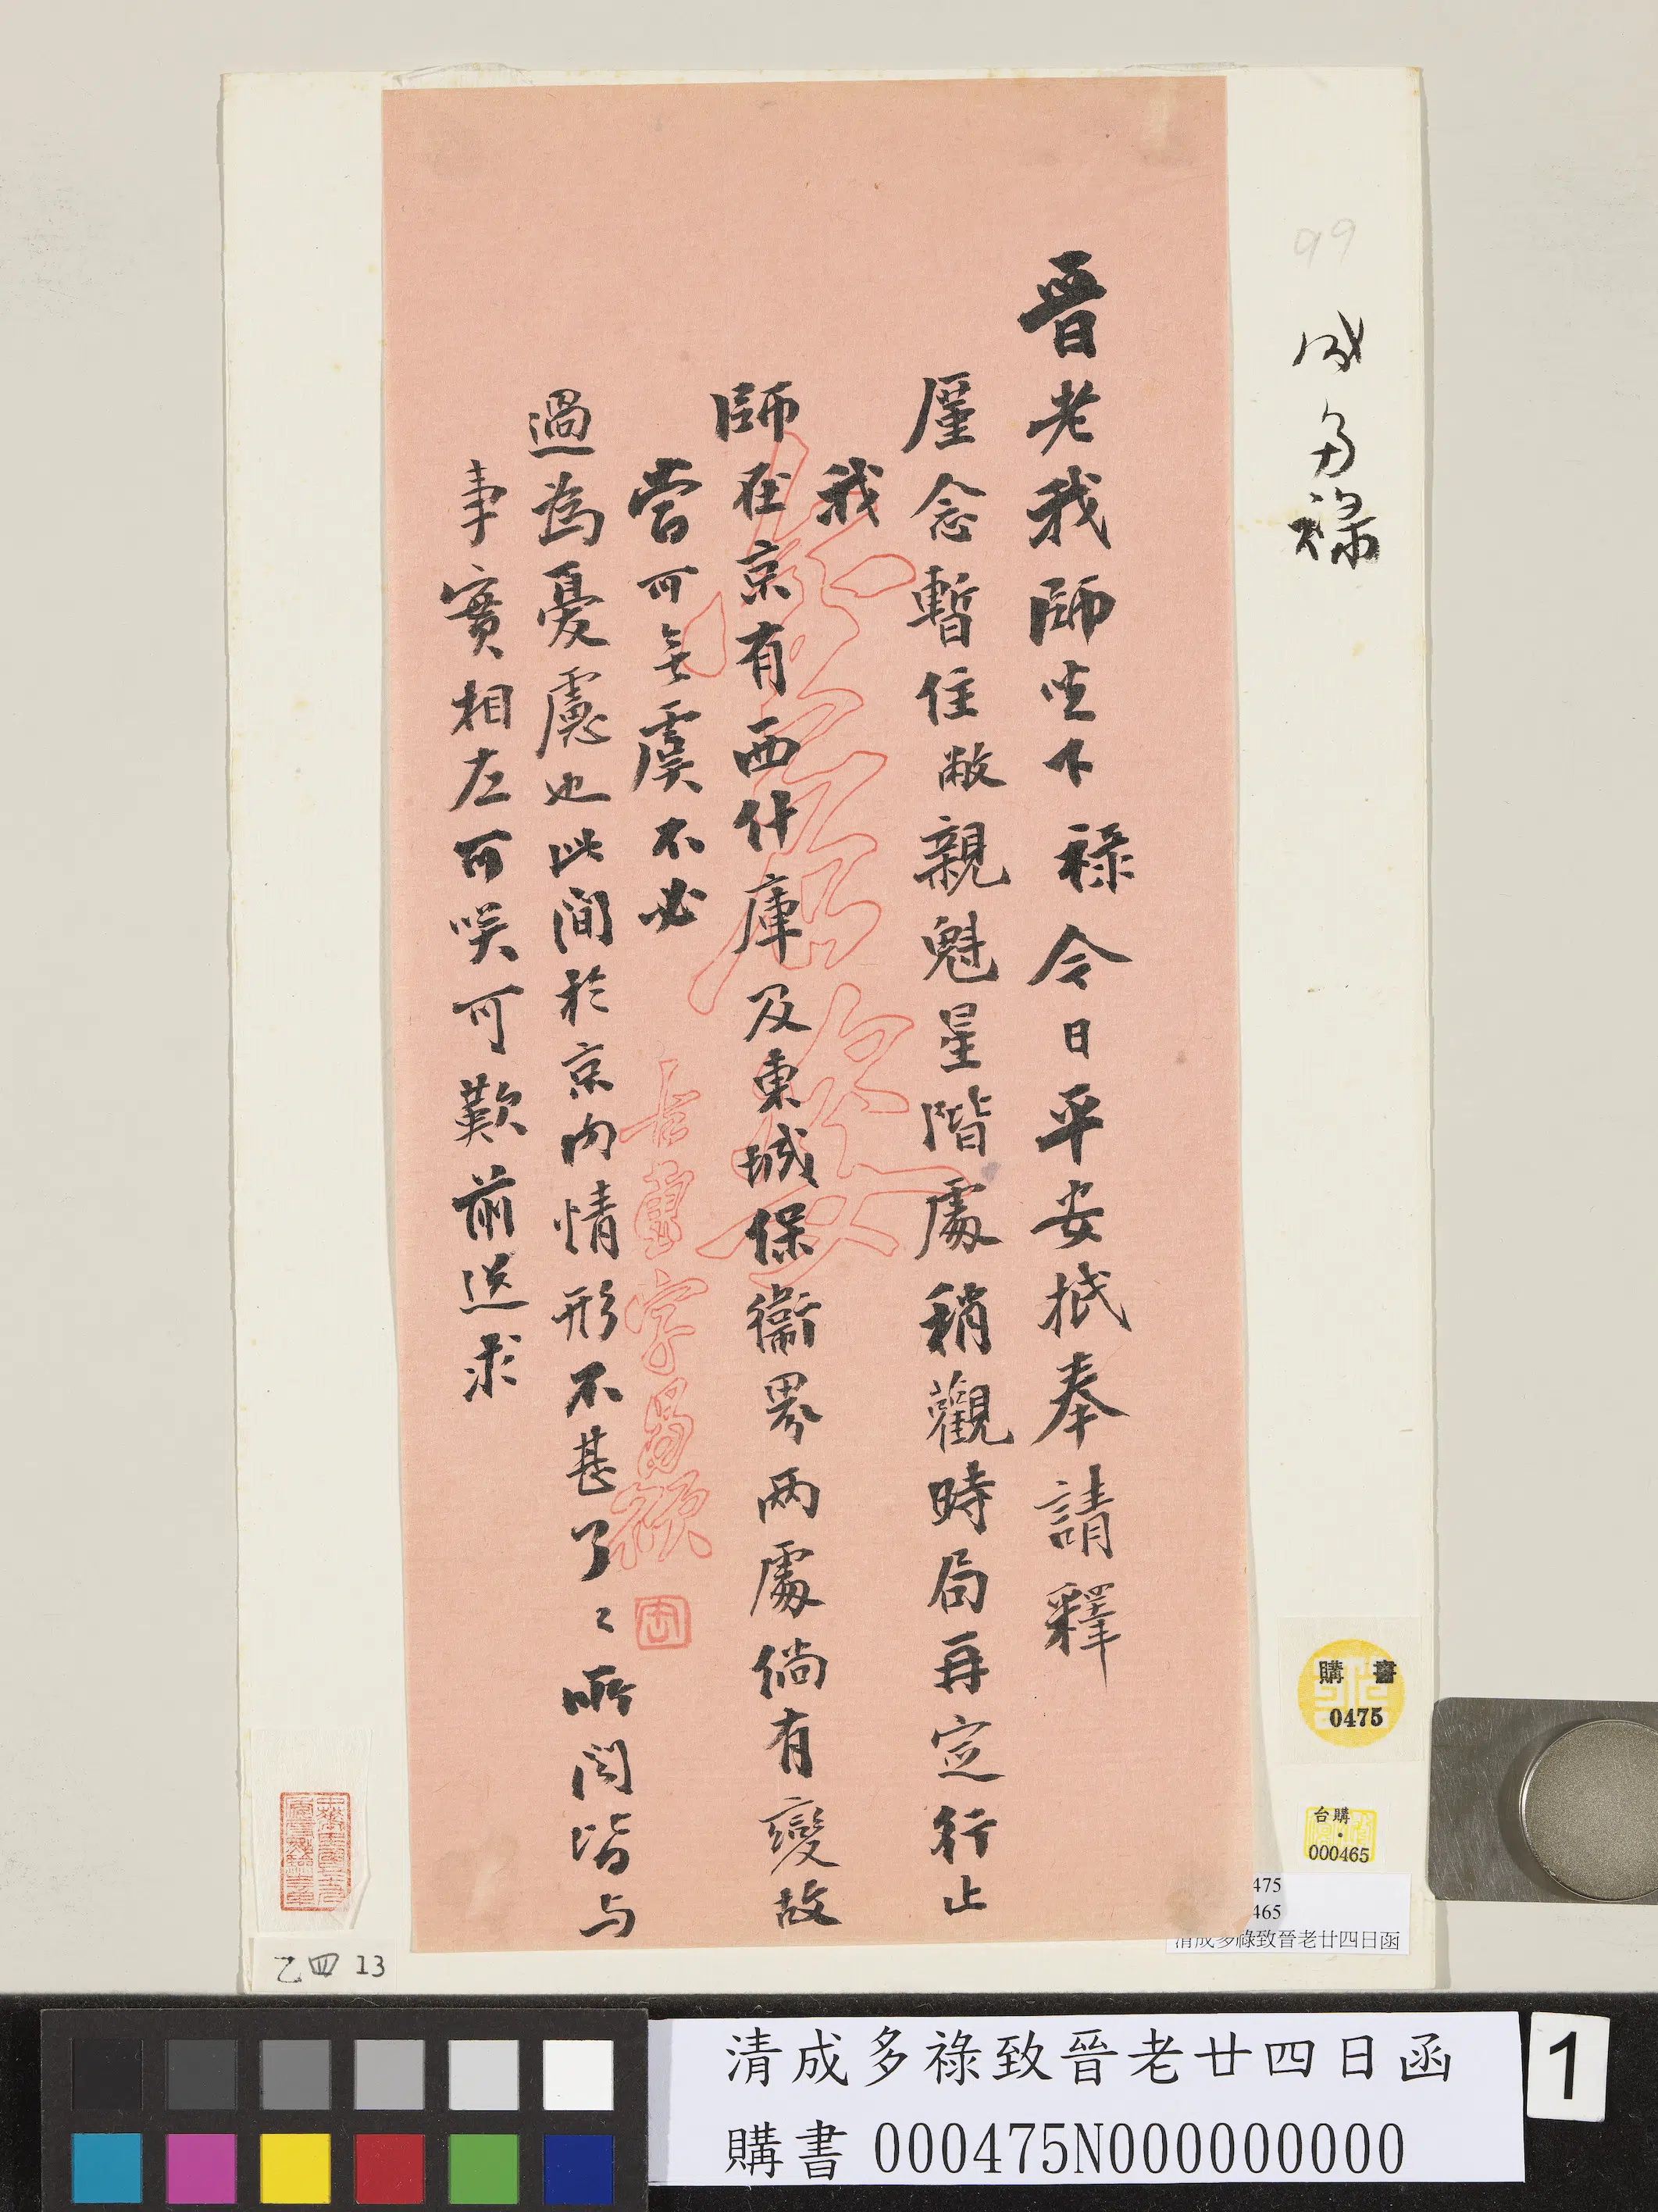 晉老我師坐下祿今日平安抵奉請釋
廑念暫住敝親魁星階處稍觀時局再定行止
我
師在京有西什庫及東城保衛界兩處倘有變故
當可無虞不必
過為憂慮也此間於京內情形不甚了〻所聞皆与
事實相左可咲可歎前送求
99
成多祿
購書
0475
台購
000465
475
465
清成多祿致晉老廿四日函
乙四 13
清成多祿致晉老廿四日函
購書 000475N000000000
1